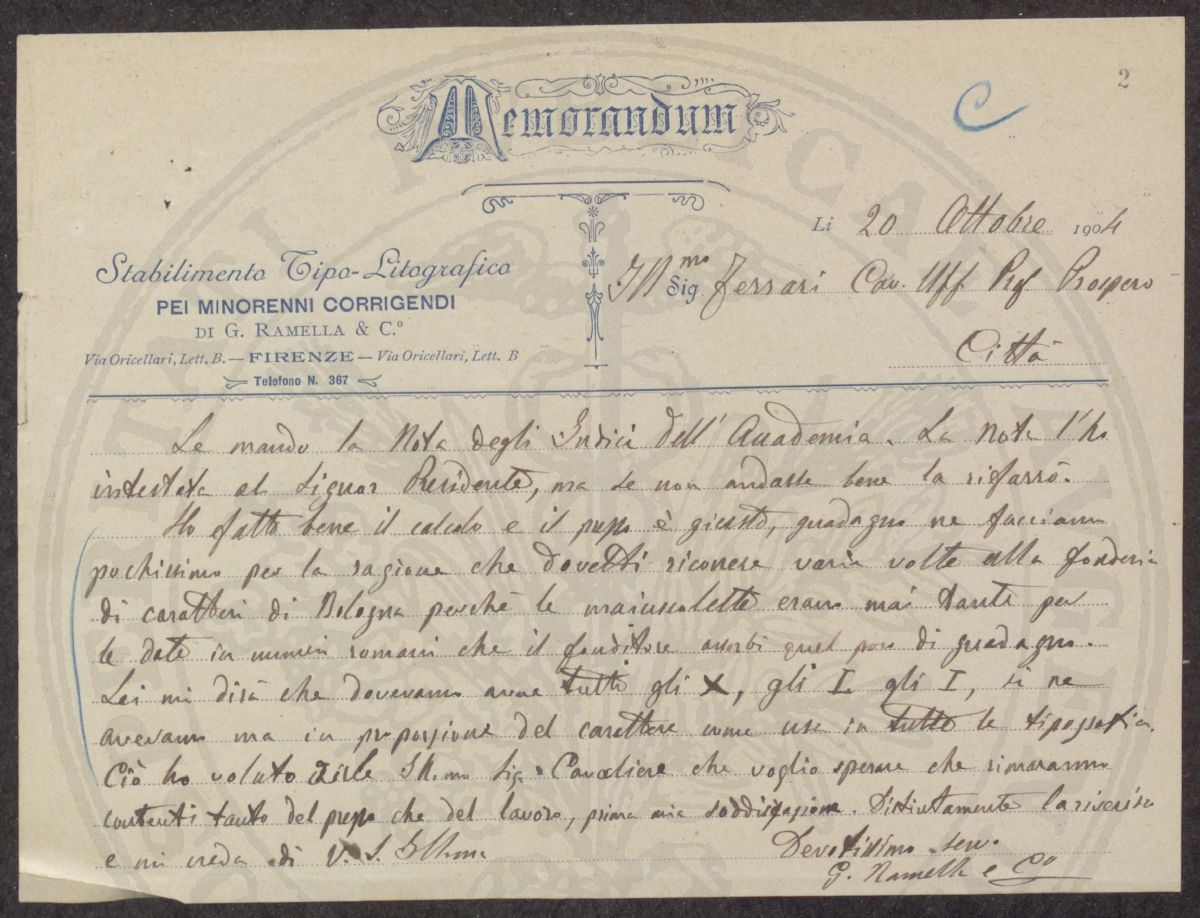 2
C
Memorandum
Li 20 Ottobre 1904
Stabilimento Tipo-Litografico
PEI MINORENNI CORRIGENDI
DI G. RAMELLA & C.º
Via Oricellari, Lett. B. — FIRENZE — Via Oricellari, Lett. B
Telefono N. 367
Ill.mo Sig. Ferrari Cav. Uff Prof Prospero
Città
Le mando la Nota degli Indici dell' Accademia. La Nota l'ho
intestata al Signor Presidente, ma se non andasse bene la rifarrò.
Ho fatto bene il calcolo e il prezzo è giusto, guadagno ne facciamo
pochissimo per la ragione che dovetti ricorrere varie volte alla fonderia
di caratteri di Bologna perchè le maiuscolette erano mai tante per
le date in numeri romani che il fonditore assorbì quel poco di guadagno.
Lei mi dirà che dovevamo avere tutti gli X, gli I gli I, si ne
avevamo ma in proporzione del carattere come usa in tutte le tipografie.
Ciò ho voluto dirle Ill.mo Sig. Cavaliere che voglio sperare che rimaranno
contenti tanto del prezzo che del lavoro, prima mia soddisfazione. Distintamente la riverisco
e mi creda di V. S. Ill.ma
Devotissimo serv.
G. Ramella e Co